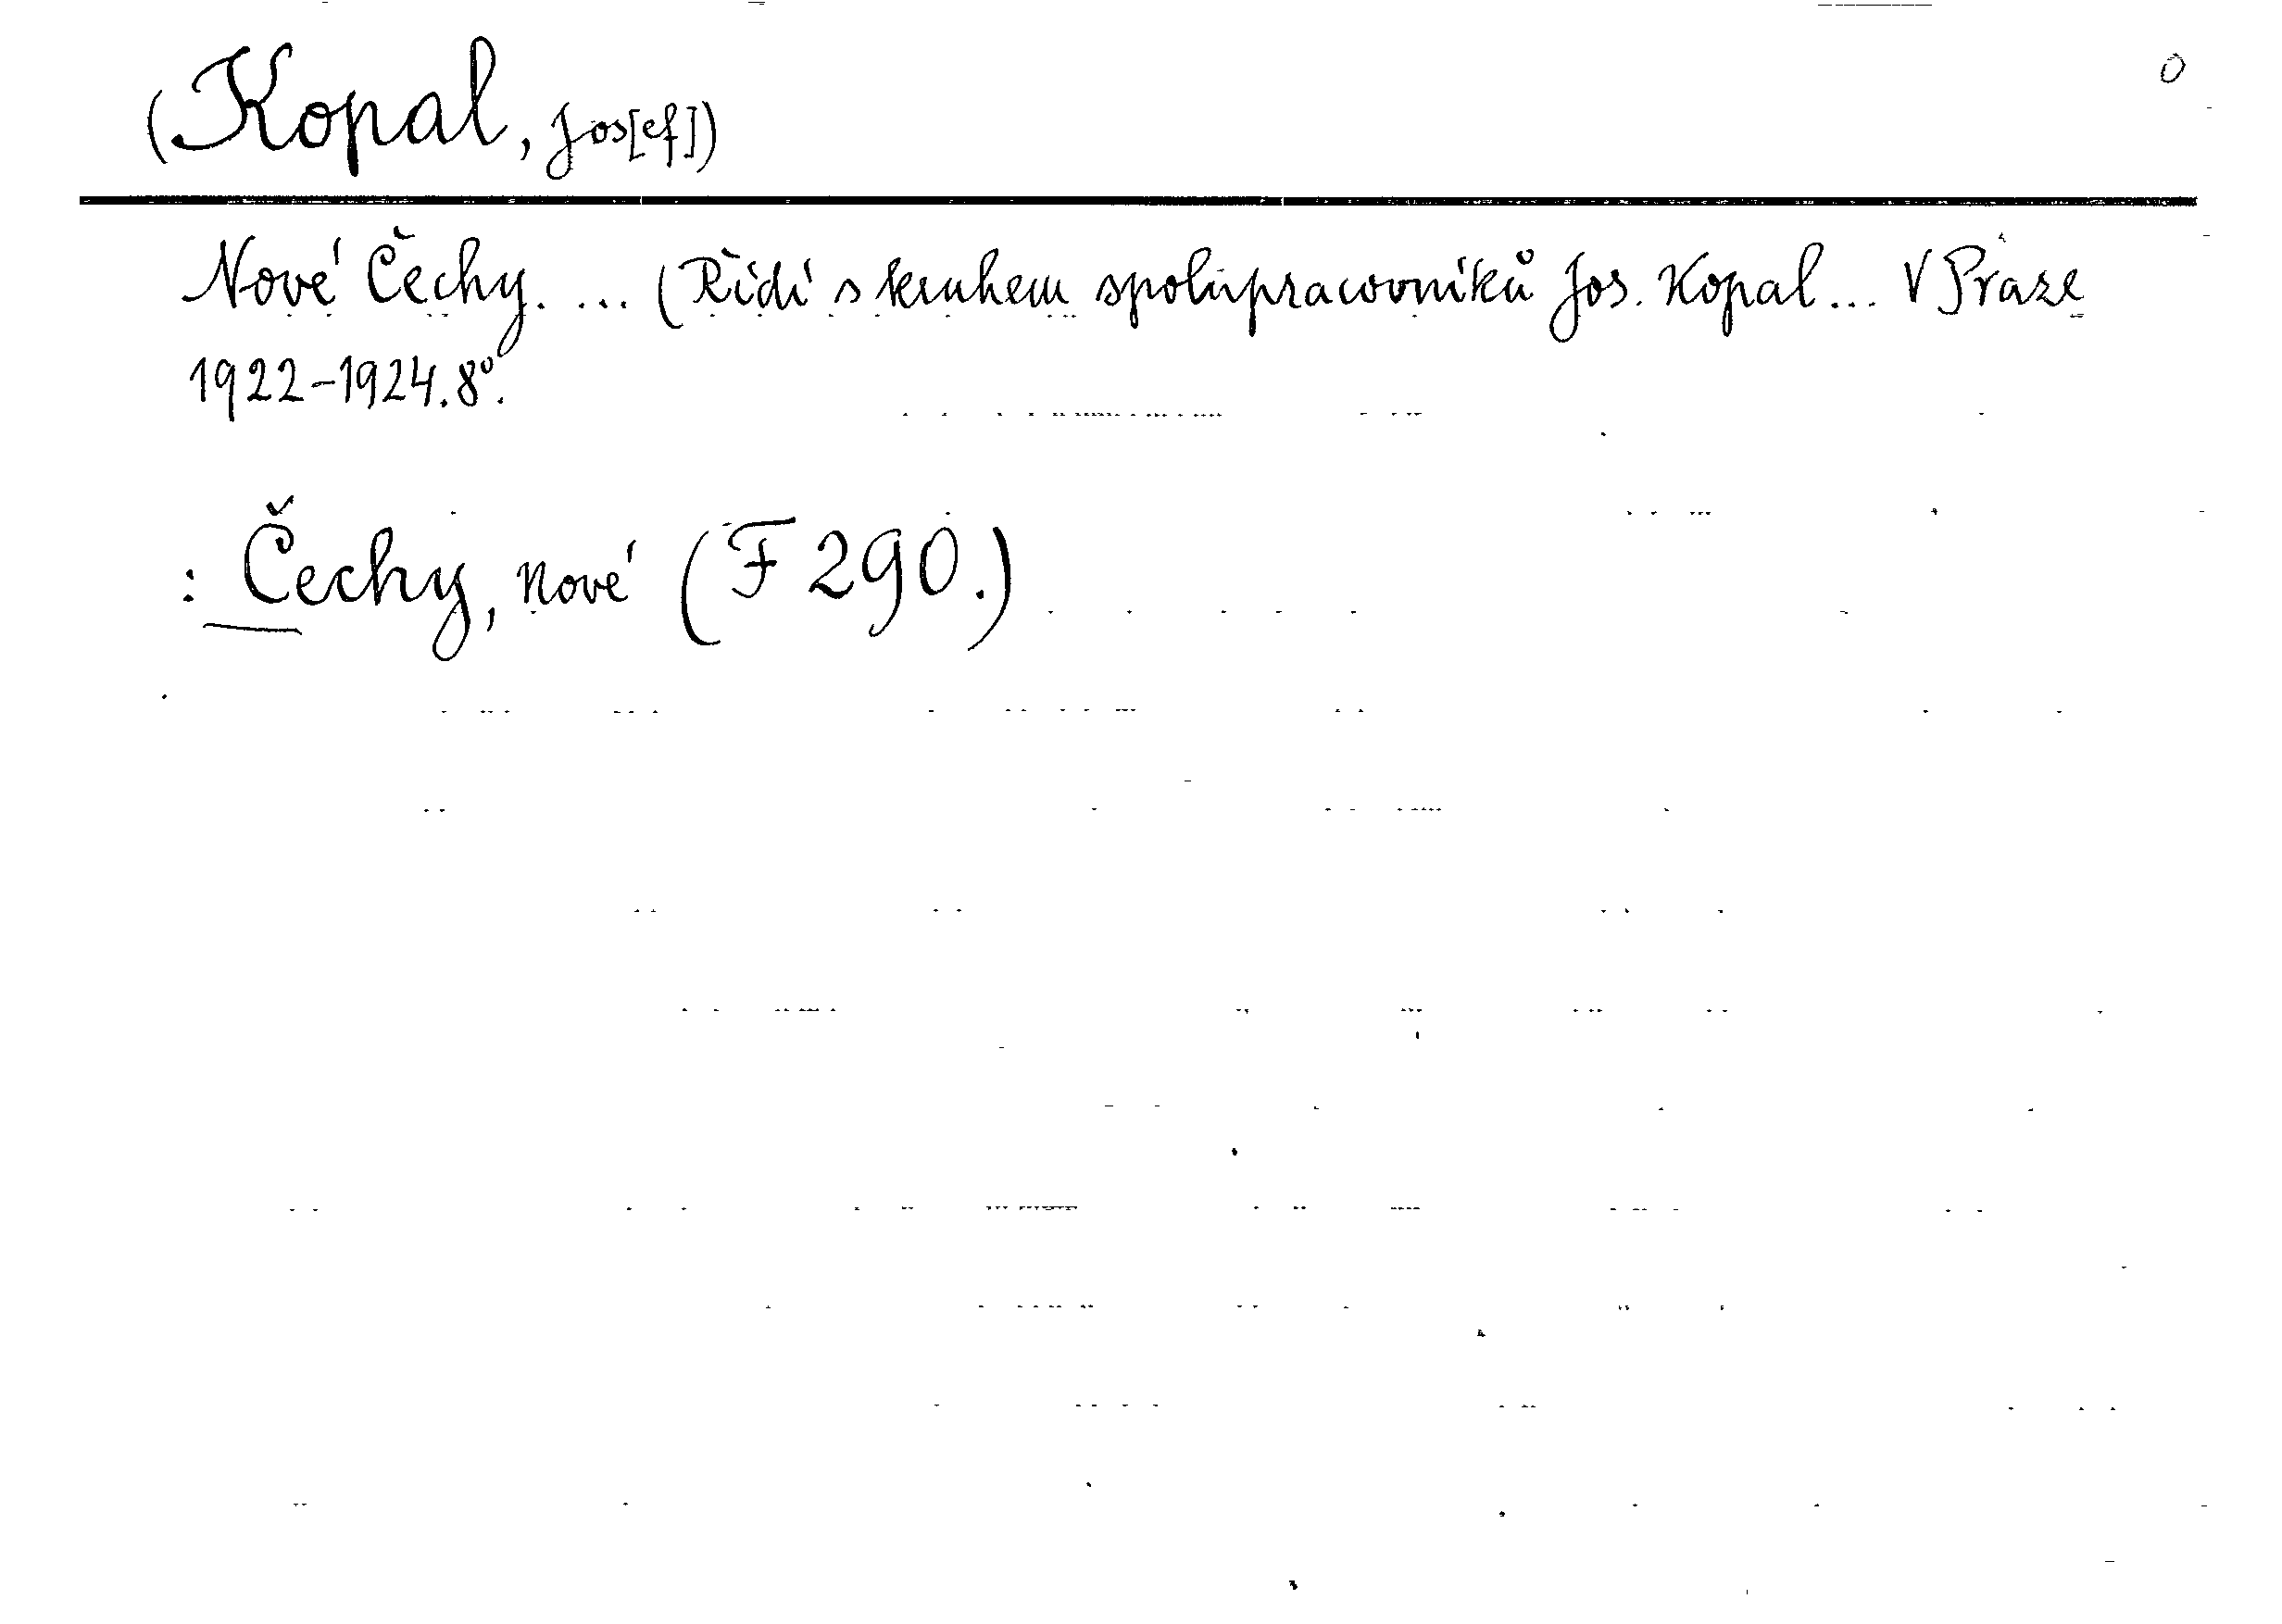 0
(Kopal, Jos[ef])
Nové Čechy. ... (Řídí s kruhem spolupracovníků Jos. Kopal... V Praze
1922-1924. 8°.
: Čechy, nové (F 290.)